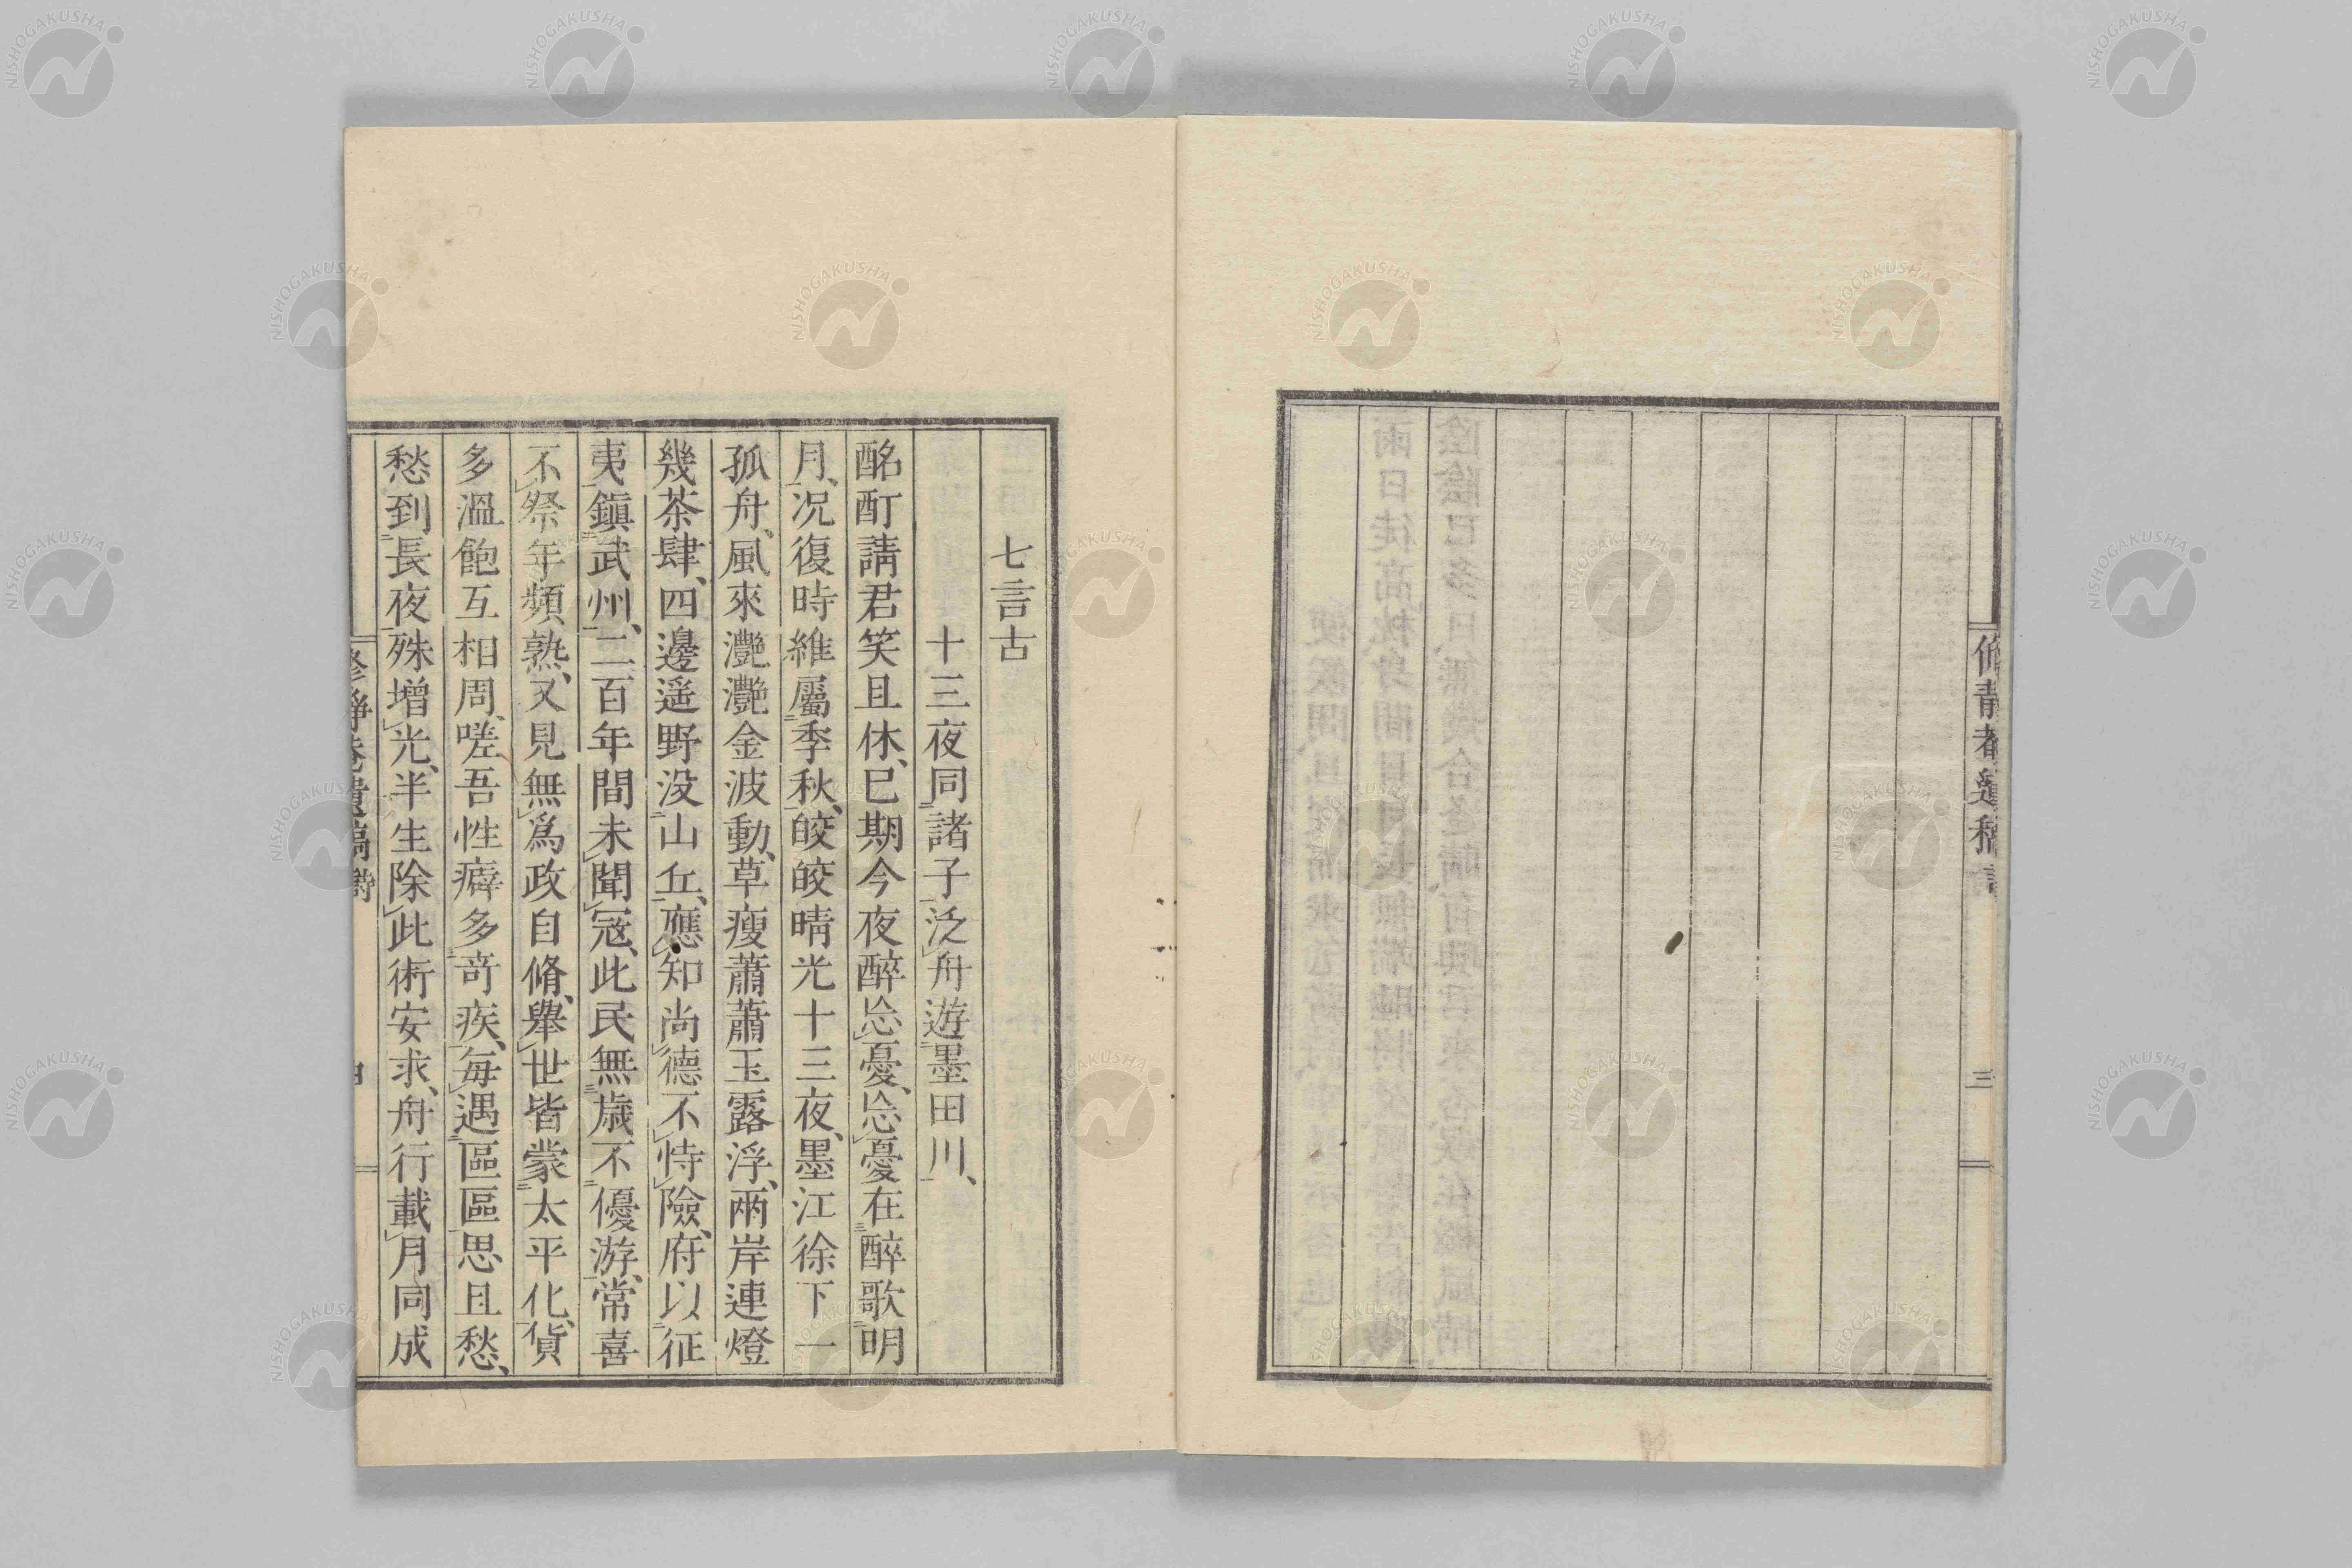 脩靜菴遺稿
三
七言古
十三夜同諸子泛舟遊墨田川、
酩酊請君笑且休、巳期今夜醉忩憂、忩憂在醉歌明
月、況復時維屬季秋、皎皎晴光十三夜、墨江徐下一
孤舟、風來灔灔金波動、草瘦蕭蕭玉露浮、兩岸連燈
幾茶肆、四邊遥野没山丘、應知尚德不恃險、府以征
夷鎭武州、二百年間未聞寇、此民無歳不優游、常喜
不祭年頻熟、又見無爲政自脩、舉世皆蒙太平化、貨
多溫飽互相周、嗟吾性癖多奇疾、每遇區區思且愁、
愁到長夜殊增光、半生除此術安求、舟行載月同成
脩靜菴遺稿
四
NISHOGAKUSHA